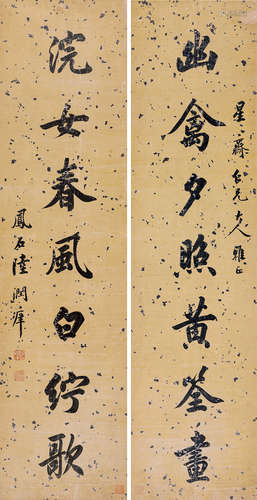 幽禽夕照黃荃畫
星蘇仁兄大人雅正
浣女春風白紵歌
鳳石陸潤庠